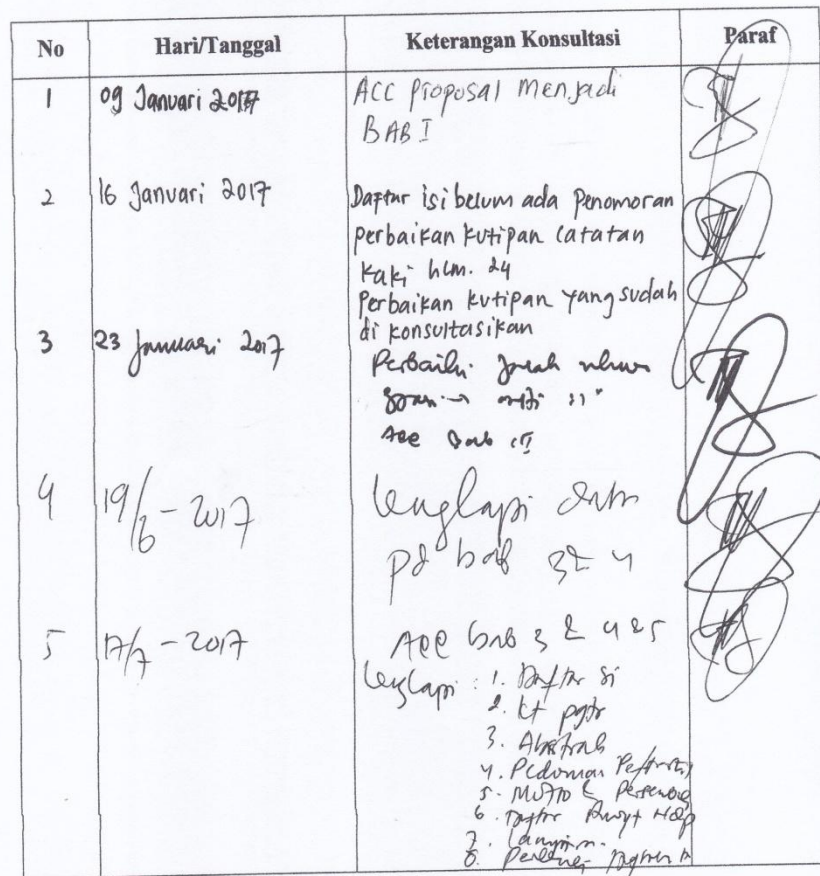 No Hari/Tanggal Keterangan Konsultasi Paraf
1 09 Januari 2017 ACC Proposal Menjadi
BAB I
2 16 Januari 2017 Daftar isi belum ada Penomoran
perbaikan kutipan Catatan
Kaki hlm. 24
Perbaikan kutipan yang sudah
di konsultasikan
3 23 Januari 2017
Perbaiki
Acc Bab II
4 19/6 - 2017 lengkapi data
pd bab 3 & 4
5 17/7 - 2017 Acc bab 3 & 4 & 5
lengkapi : 1. Daftar isi
2. kt pgtr
3. Abstrak
4. Pedoman
5. Motto &
6. Daftar Hdp
7. Lampiran
8.